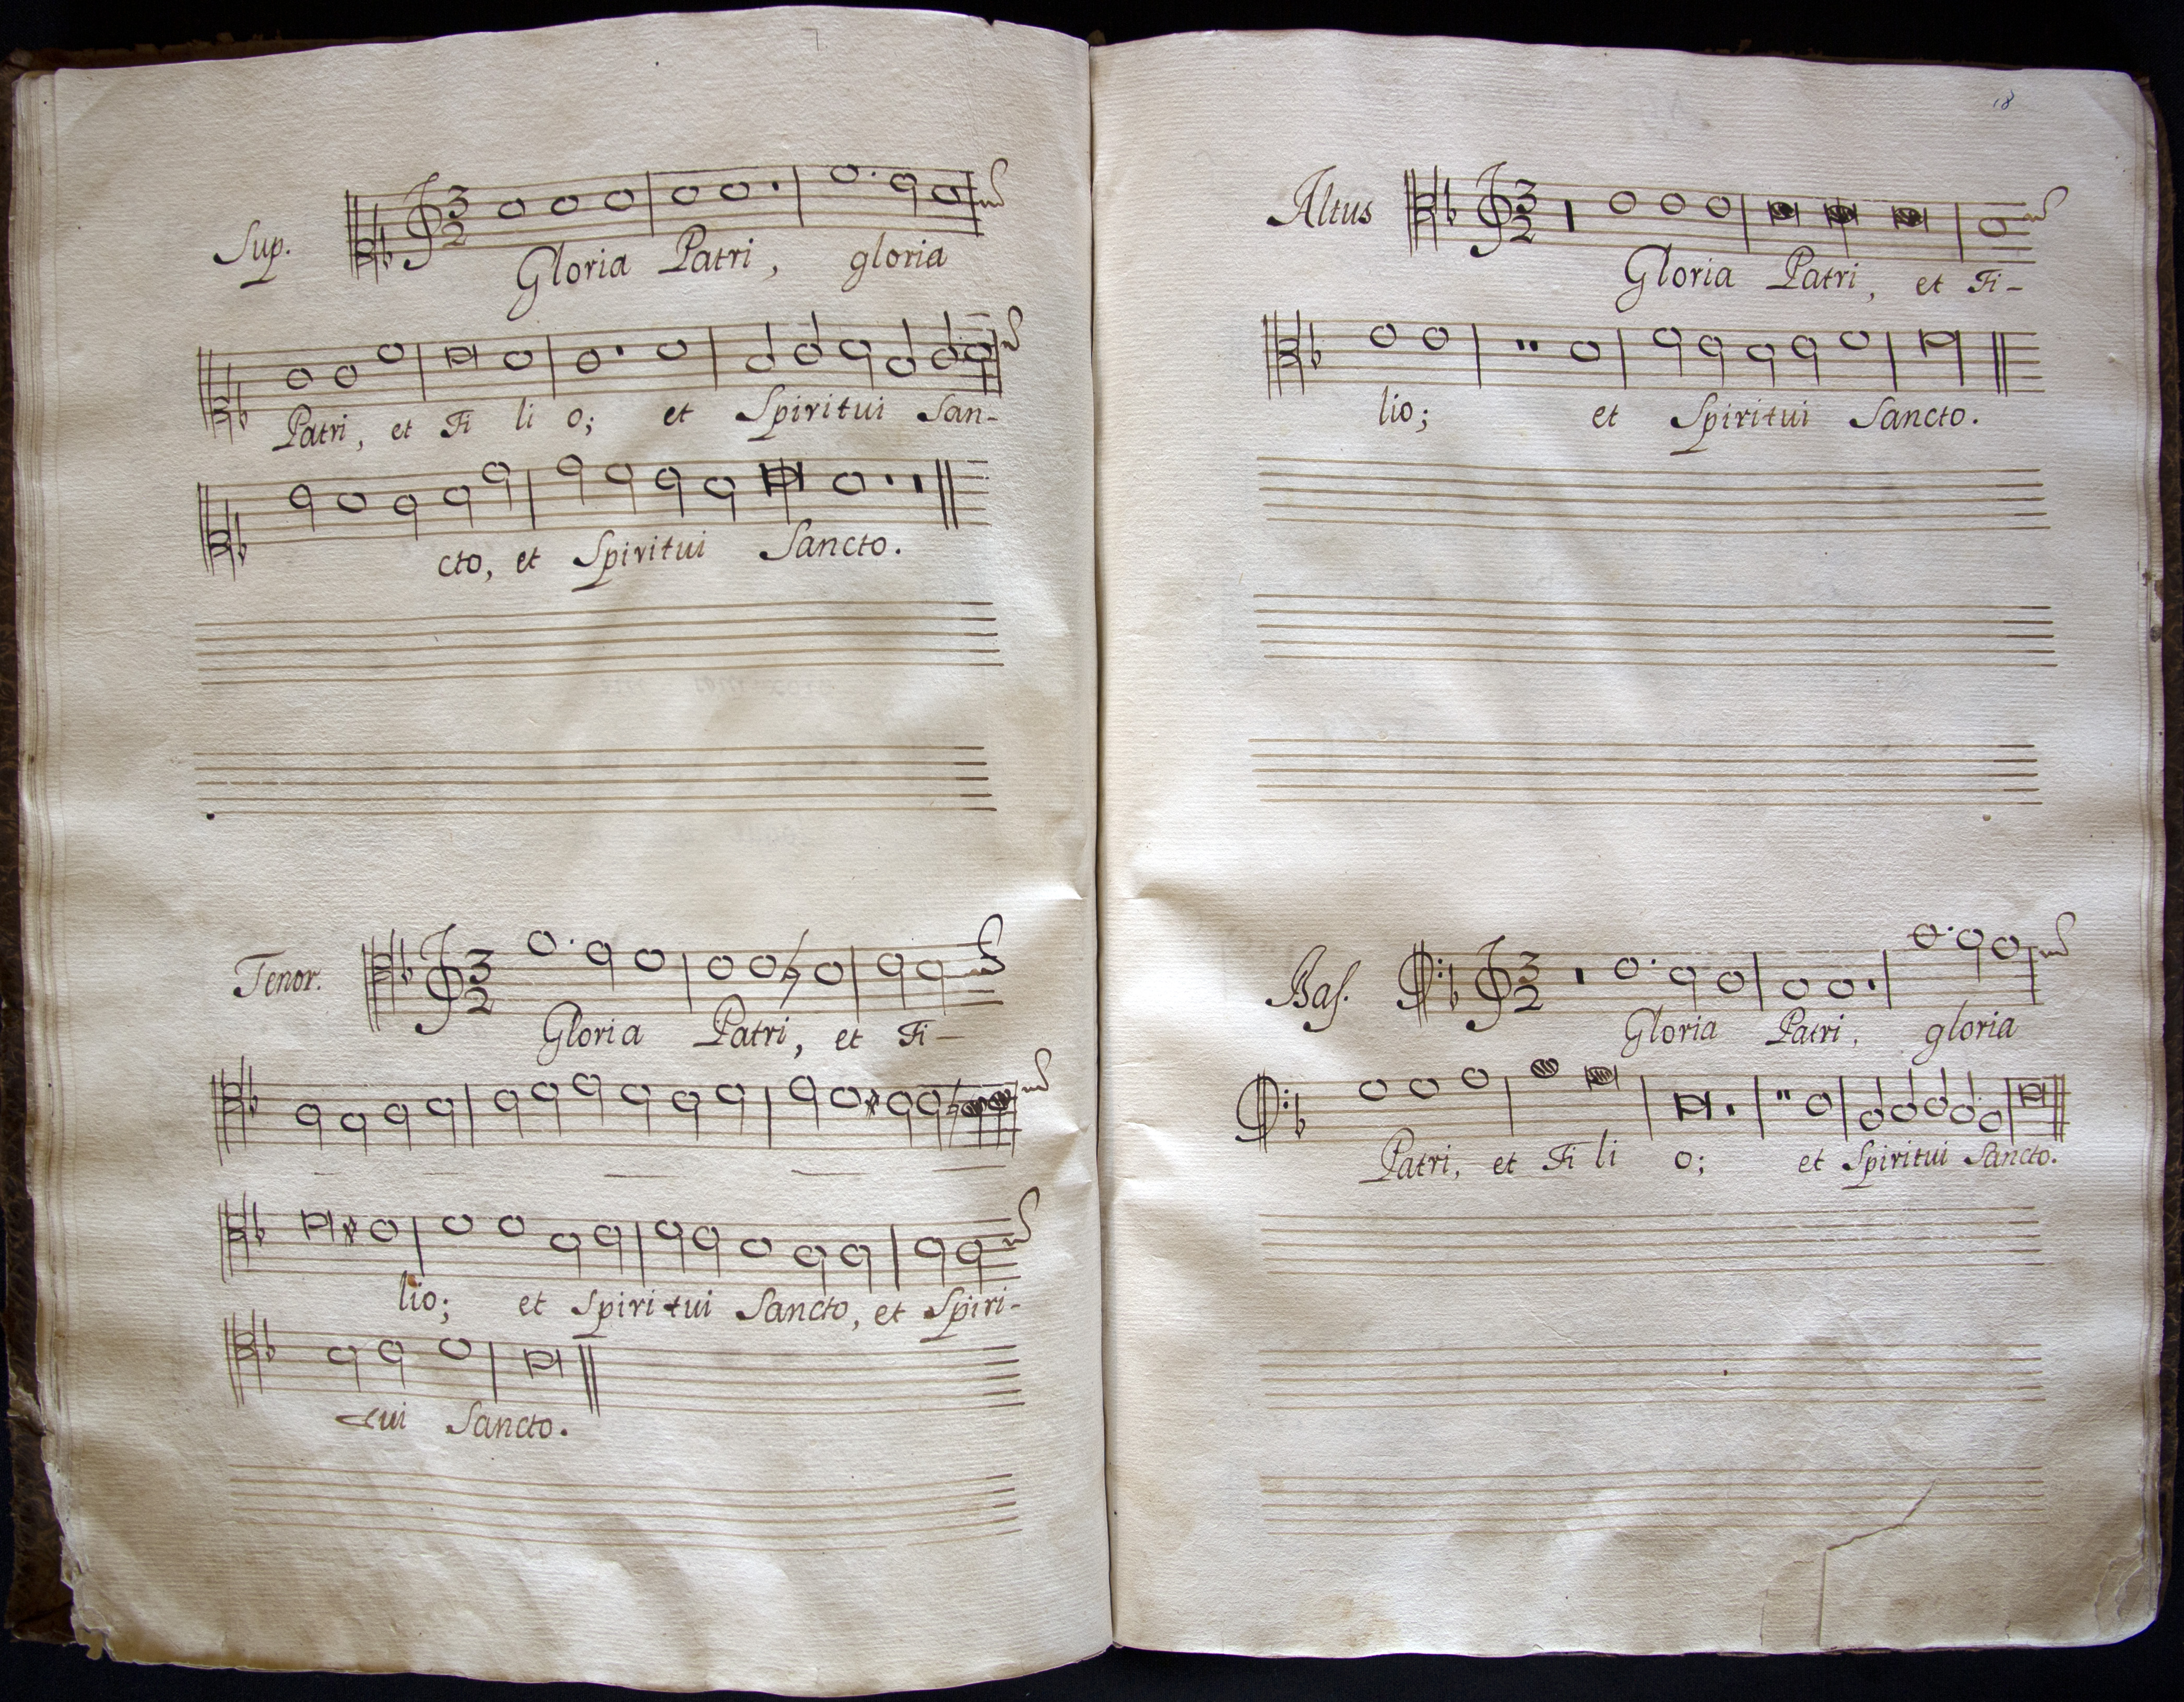 Sup.
3
2
Gloria Patri, gloria
Patri, et Fi li o; et Spiritui San-
cto, et Spiritui Sancto.
Tenor.
3
2
Gloria Patri, et Fi-
lio; et Spiritui Sancto, et Spiri-
tui Sancto.
18
Altus
3
2
Gloria Patri, et Fi-
lio; et Spiritui Sancto.
Bas.
3
2
Gloria Patri, gloria
Patri, et Fi li o; et Spiritui Sancto.